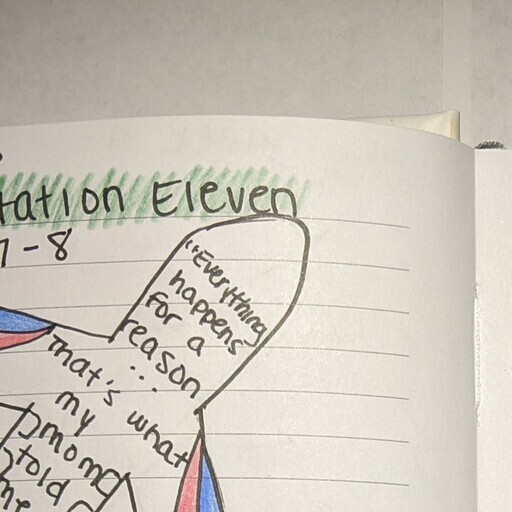 tation Eleven
7-8
"Everything
happens
for a
reason
...
That's what
my
mom
told
me